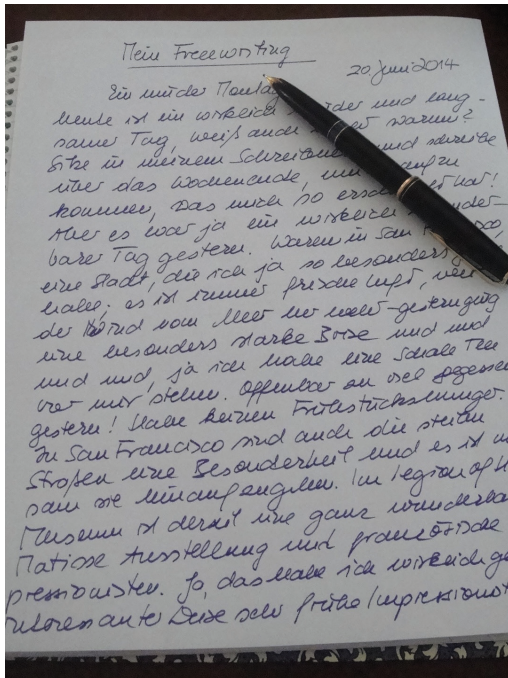 Mein Freewriting
20 Juni 2014
Ein müder Montag
heute ist ein wirklich müder und lang-
samer Tag, weiß auch warum?
Sitze in meinem und schreibe
über das Wochenende, um
kommen, das mich so hat!
Aber es war ja ein wirklich
barer Tag gestern. Waren in San
eine Stadt, die ich ja so besonders
habe; es ist immer frische Luft, wenn
der Wind vom Meer her weht - gestern ging
eine besonders starke Brise und und
und und, ja ich habe eine Schale Tee
vor mir stehen. Offenbar zu viel gegessen
gestern! Habe keinen Frühstückshunger.
In San Francisco sind auch die steilen
Straßen eine Besonderheit und es ist
sam sie hinaufzugehen. Im Legion of H
Museum ist derzeit eine ganz wunderba
Matisse Ausstellung und französische
pressionisten. Ja, das habe ich wirklich
interessanter Weise sehr frühe Impressionist